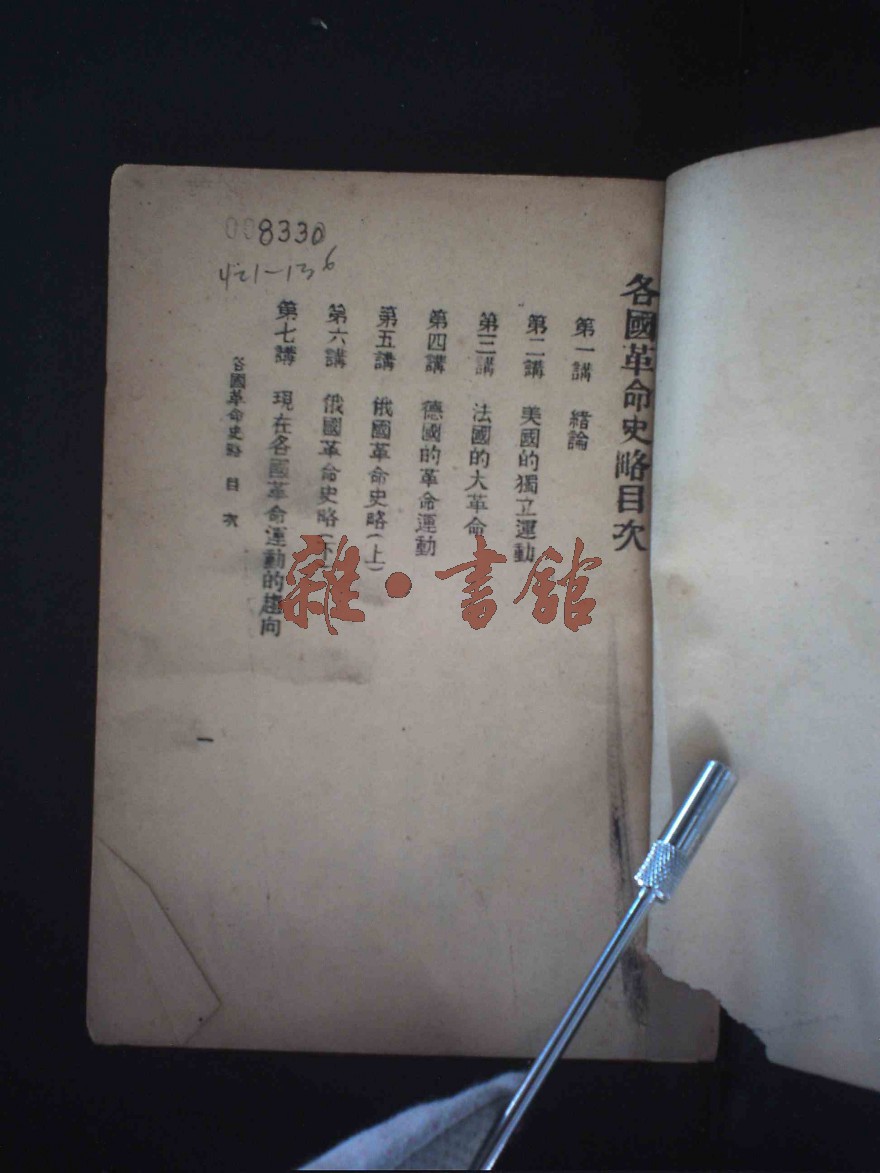 各國革命史略目次
第一講 緒論
第二講 美國的獨立運動
第三講 法國的大革命
第四講 德國的革命運動
第五講 俄國革命史略(上)
第六講 俄國革命史略(下)
第七講 現在各國革命運動的趨向
各國革命史略 目次
一
008330
雜·書館